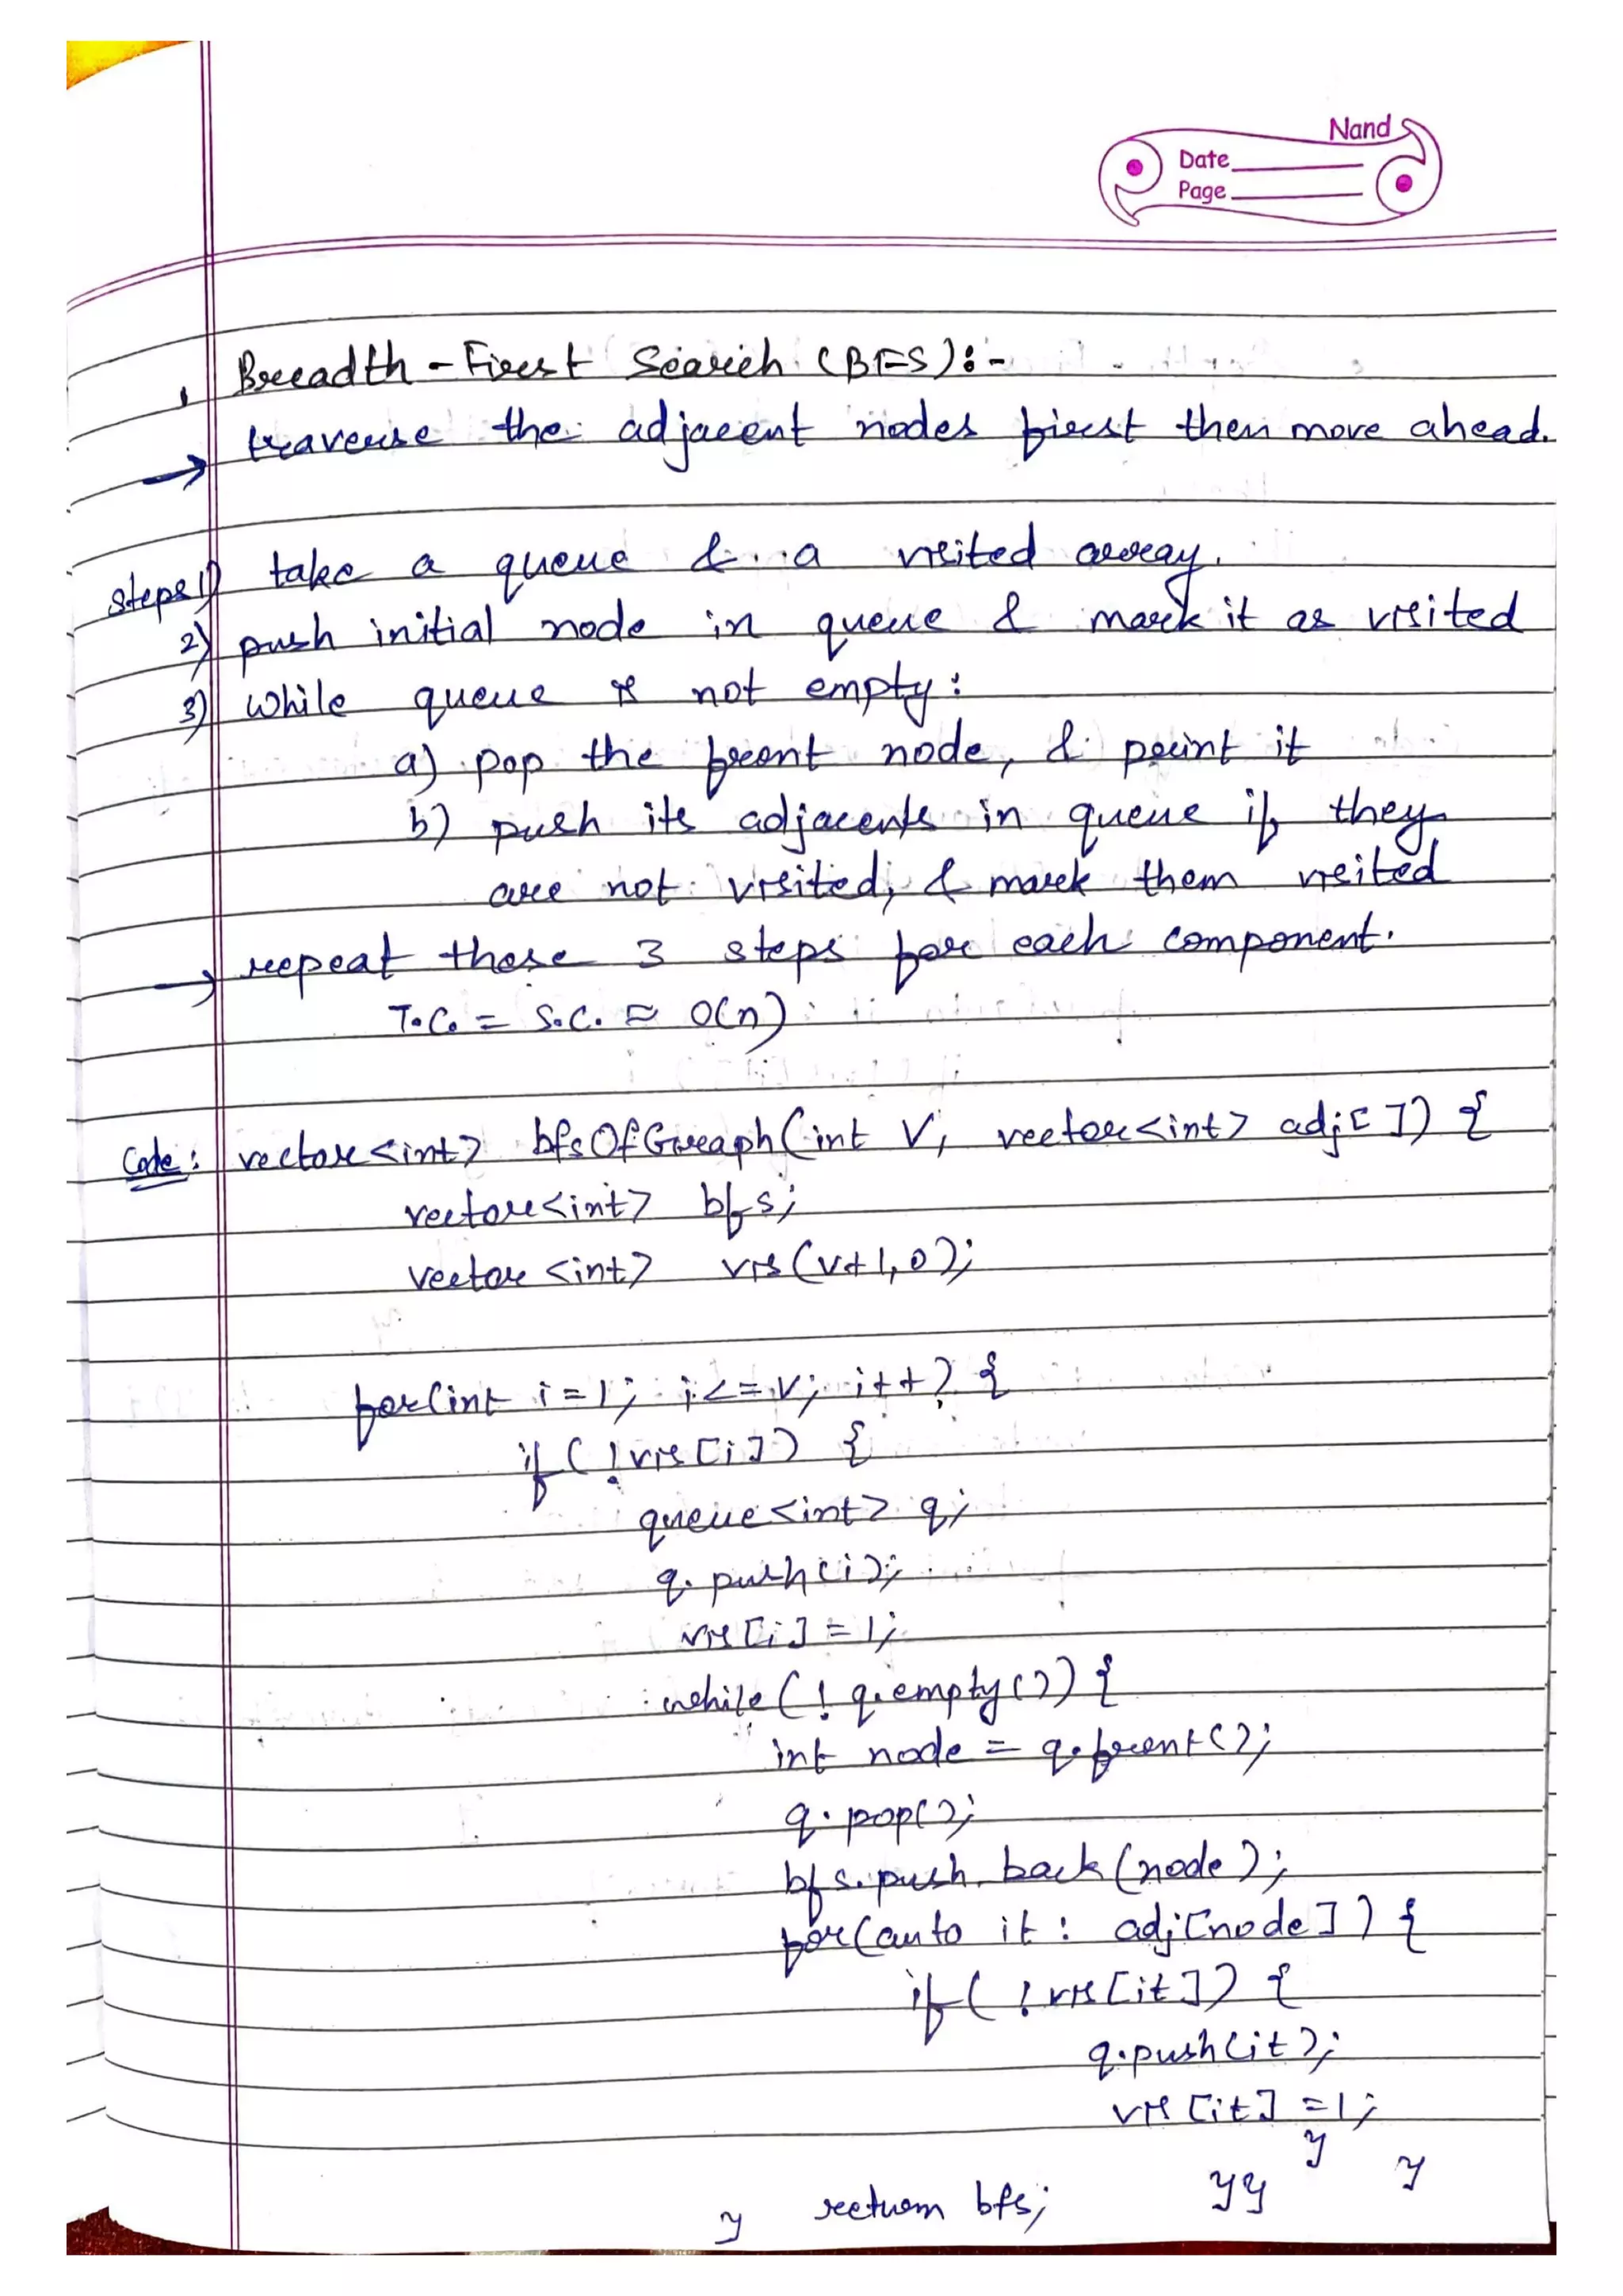 Nand
Date
Page
Breadth - First Search (BFS):-
→ traverse the adjacent nodes first then move ahead.
steps 1) take a queue & a visited array.
2) push initial node in queue & mark it as visited
3) while queue is not empty:
a) pop the front node, & print it
b) push its adjacents in queue if they
are not visited, & mark them visited
→ repeat these 3 steps for each component.
T.C. = S.C. ≈ O(n)
Code: vector<int> bfsOfGraph(int V, vector<int> adj[]) {
vector<int> bfs;
vector<int> vis(v+1,0);
for(int i=1; i<=v; i++) {
if(!vis[i]) {
queue<int> q;
q.push(i);
vis[i]=1;
while(!q.empty()) {
int node = q.front();
q.pop();
bfs.push_back(node);
for(auto it : adj[node]) {
if(!vis[it]) {
q.push(it);
vis[it]=1;
}
}} }
return bfs;
}